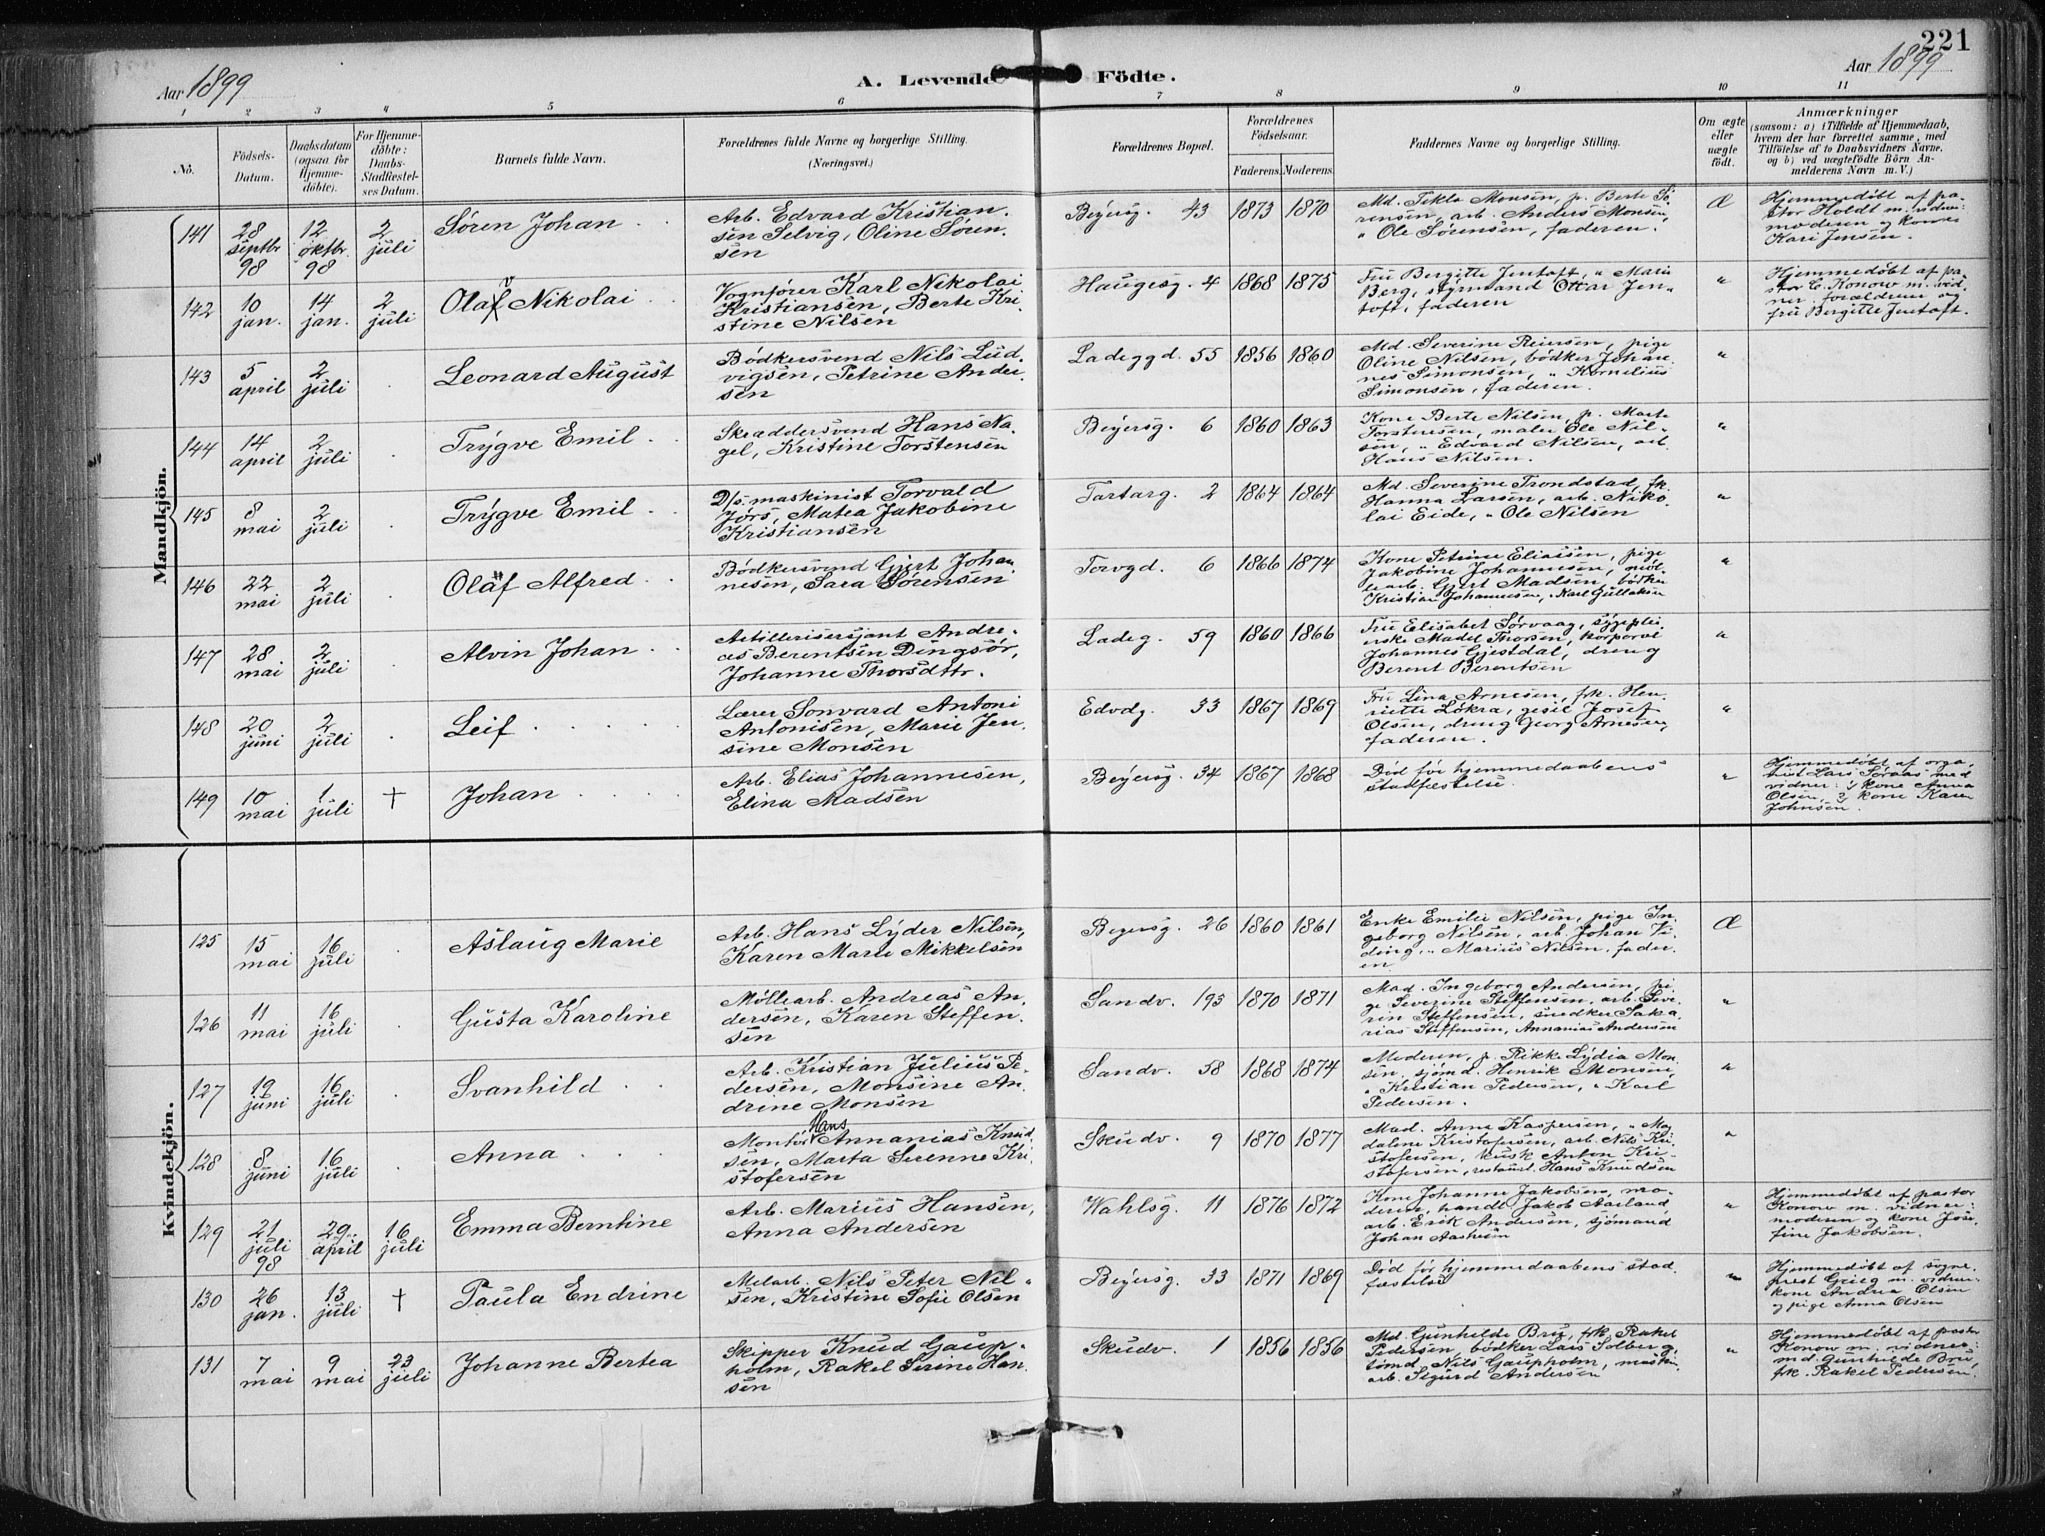 221
Aar 1899
A. Levende Födte.
Aar 1899
1 2 3 4 5 6 7 8 9 10 11
No.
Födsels-
Datum.
Daabsdatum
(ogsaa for
Hjemme-
døbte).
For Hjemme-
döbte:
Daabs-
Stadfæstel-
ses Datum.
Barnets fulde Navn.
Forældrenes fulde Navne og borgerlige Stilling.
(Næringsvei.)
Forældrenes Bopæl.
Forældrenes
Födselsaar.
Faderens. Moderens.
Faddernes Navne og borgerlige Stilling.
Om ægte
eller
uægte
födt.
Anmærkninger
(saasom: a) i Tilfælde af Hjemmedaab,
hvem der har forrettet samme, med
Tilföielse af to Daabsvidners Navne,
og b) ved uægtefödte Börn An-
melderens Navn m. V.)
Mandkjön.
141
28
septbr
98
12
oktbr.
98
2
juli
Søren Johan
Arb. Edvard Kristian-
sen Selvig, Oline Søren-
sen
Beyersg. 43 1873 1870
Md. Tekla Monsen, p. Berte Sö-
rensen, arb. Anders Monsen,
" Ole Sørensen, faderen.
Æ
Hjemmedøbt af pa-
stor Holdt m. vidner:
moderen og kone
Kari Jensen.
142
10
jan.
14
jan.
2
juli
Olaf Nikolai
v
Vognfører Karl Nikolai
Kristiansen, Berte Kri-
stine Nilsen
Haugesg. 4 1868 1875
Fru Bergitte Jentoft, " Marie
Berg, styrmand Ottar Jen-
toft, faderen
"
Hjemmedøbt af pa-
stor C. Konow m. vid-
ner: forældrene og
fru Bergitte Jentoft.
143
5
april
2
juli
Leonard August
Bødkersvend Nils Lud-
vigsen, Petrine Ander-
sen
Ladeggd. 55 1856 1860
Md. Severine Reiersen, pige
Oline Nilsen, bødker Johan-
nes Simonsen, " Kornelius
Simonsen, faderen.
"
144
14
april
2
juli
Trygve Emil
Skræddersvend Hans Na-
gel, Kristine Torstensen
Beyersg. 6 1860 1863
Kone Berte Nilsen, p. Marte
Torstensen, maler Ole Nil-
sen, " Edvard Nilsen, arb.
Hans Nilsen.
"
145
8
mai
2
juli
Trygve Emil
D/s. maskinist Torvald
Jørs, Matea Jakobine
Kristiansen
Tartarg. 2 1864 1864
Md. Severine Trondstad, fk.
Hanna Larsen, arb. Niko-
lai Eide, " Ole Nilsen
"
146
22
mai
2
juli
Olaf Alfred
Bødkersvend Gjert Johan-
nesen, Sara Sørensen
Torvgd. 6 1866 1874
Kone Petrine Eliassen, pige
Jakobine Johannesen, møl-
learb. Gjert Madsen, bødker
Kristian Johannesen, " Karl Gullaksen
"
147
28
mai
2
juli
Alvin Johan
Artillerisersjant Andre-
as Berentsen Dingsør,
Johanne Thorsdttr.
Ladeg. 59 1860 1866
Fru Elisabet Sørvaag, sygeplei-
erske Madel Thorsen, korporal
Johannes Gjestdal, dreng
Berent Berentsen
"
148
20
juni
2
juli
Leif
Lærer Sonvard Antoni
Antonisen, Marie Jen-
sine Monsen
Edvdg. 33 1867 1869
Fru Lina Arnesen, frk. Hen-
riette Løkra, gesel Josef
Olsen, dreng Georg Arnesen,
faderen.
"
149
10
mai
1
juli
†
Johan
Arb. Elias Johannesen,
Elina Madsen
Beyersg. 34 1867 1868
Død før hjemmedaabens
stadfæstelse.
"
Hjemmedøbt af orga-
nist Lars Søraas med
vidner: 1) kone Anna
Olsen, 2) kone Karen
Johnsen.
Kvindekjön.
125
15
mai
16
juli
Aslaug Marie
Arb. Hans Lyder Nilsen,
Karen Marie Mikkelsen
Beyersg. 26 1860 1861
Enke Emilie Nilsen, pige In-
geborg Nilsen, arb. Johan Vi-
ding, " Marius Nilsen, fader-
en
Æ
126
11
mai
16
juli
Gusta Karoline
Møllearb. Andreas An-
dersen, Karen Steffen-
sen
Sandv. 193 1870 1871
Mad. Ingeborg Andersen, pi-
ge Severine Steffensen, arb. Seve-
rin Steffensen, snedker Saka-
rias Steffensen, Annanias Andersen
"
127
19
juni
16
juli
Svanhild
Arb. Kristian Julius Pe-
dersen, Monsine An-
drine Monsen
Sandv. 58 1868 1874
Moderen, p. Rikke Lydia Mon-
sen, sjömd. Henrik Monsen,
" Kristian Pedersen, " Karl
Pedersen.
"
128
8
juni
16
juli
Anna
Hans
Montør Annanias Knud-
sen, Marta Serenne Kri-
stofersen
Skudv. 9 1870 1877
Mad. Anne Kaspersen, " Ma-
dalene Kristofersen, arb. Nils Kri-
stofersen, kusk Anton Kri-
stofersen, restaurt. Hans Knudsen
"
129
21
juli
98
29
april
16
juli
Emma Berntine
Arb. Marius Hansen,
Anna Andersen
Wahlsg. 11 1876 1872
Kone Johanne Jakobsen, mo-
deren, handl. Jakob Aarland,
arb. Erik Andersen, sjömand
Johan Aashesen
"
Hjemmedøbt af pastor
Konow m. vidner:
moderen og kone Jose-
fine Jakobsen.
130
26
jan.
13
juli
†
Paula Endrine
Melarb. Nils Peter Nil-
sen, Kristine Sofie Olsen
Beyersg. 33 1871 1869
Død før hjemmedaabens stad-
fæstelse
"
Hjemmedøbt af sogne-
prest Grieg m. vidner:
kone Andrea Olsen
og pige Anna Olsen
131
7
mai
9
mai
23
juli
Johanne Bertea
Skipper Knud Gaup-
holm, Rakel Serine Han-
sen
Skudv. 1 1856 1856
Md. Gunhilde Bru, frk. Rakel
Pedersen, bödker Lars Solberg,
sömd. Nils Gaupholm, maskin-
arb. Sigurd Andersen
"
Hjemmedøbt af pastor
Konow m. vidner:
md. Gunhilde Bru,
frk. Rakel Pedersen.